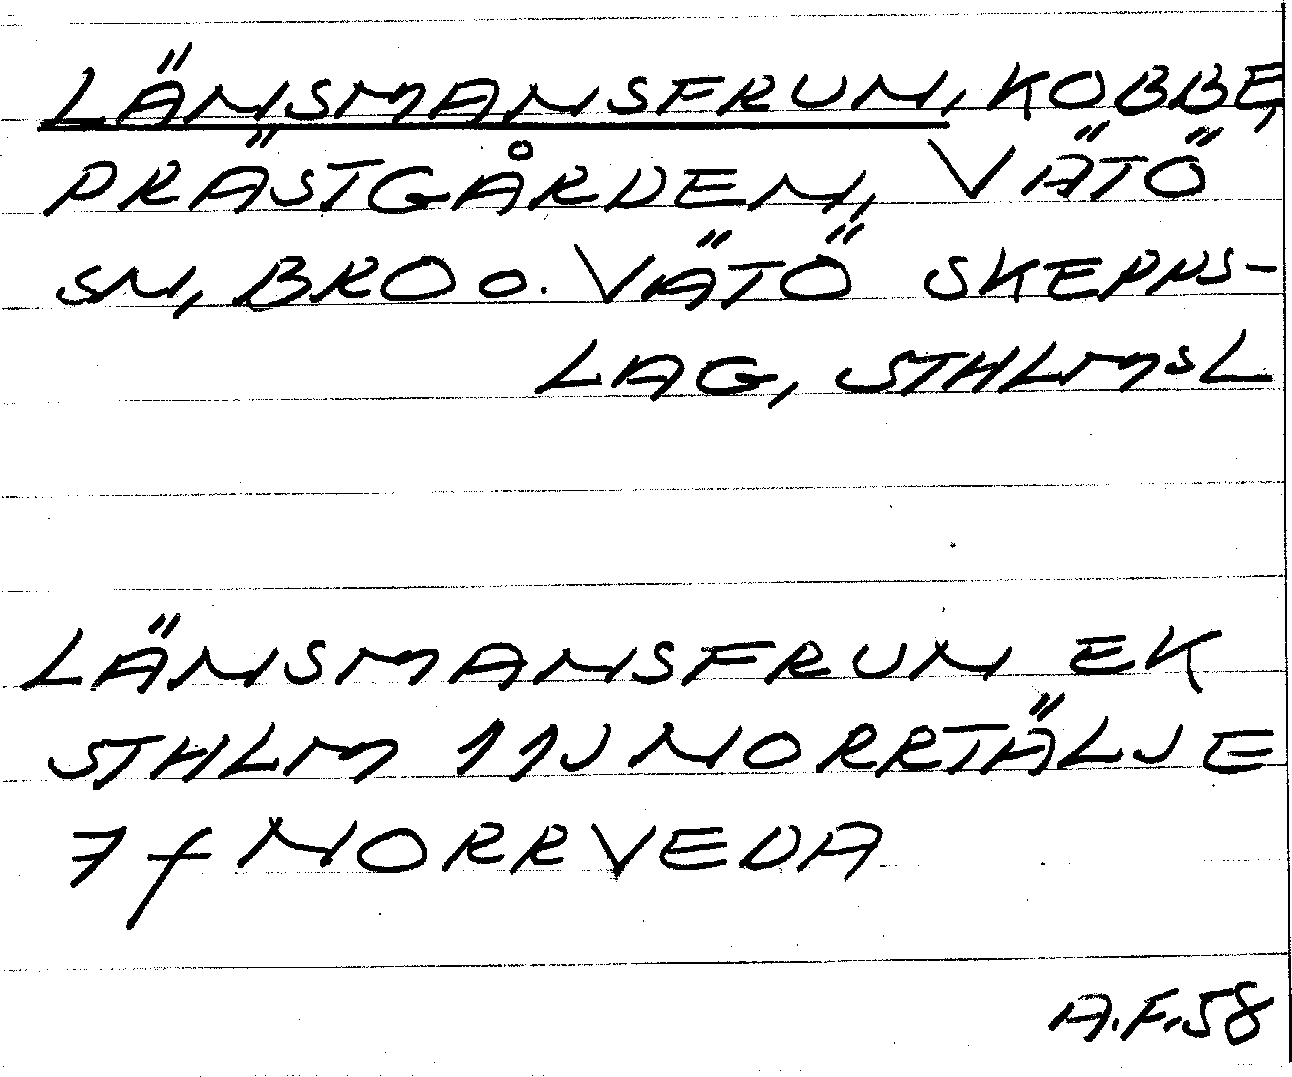 LÄNSMANSFRUN, KOBBE,
PRÄSTGÅRDEN, VÄTÖ
SN, BRO o. VÄTÖ SKEPPS-
LAG, STHLMSL
LÄNSMANSFRUN EK
STHLM 11J NORRTÄLJE
7 f NORRVEDA
A.F.58